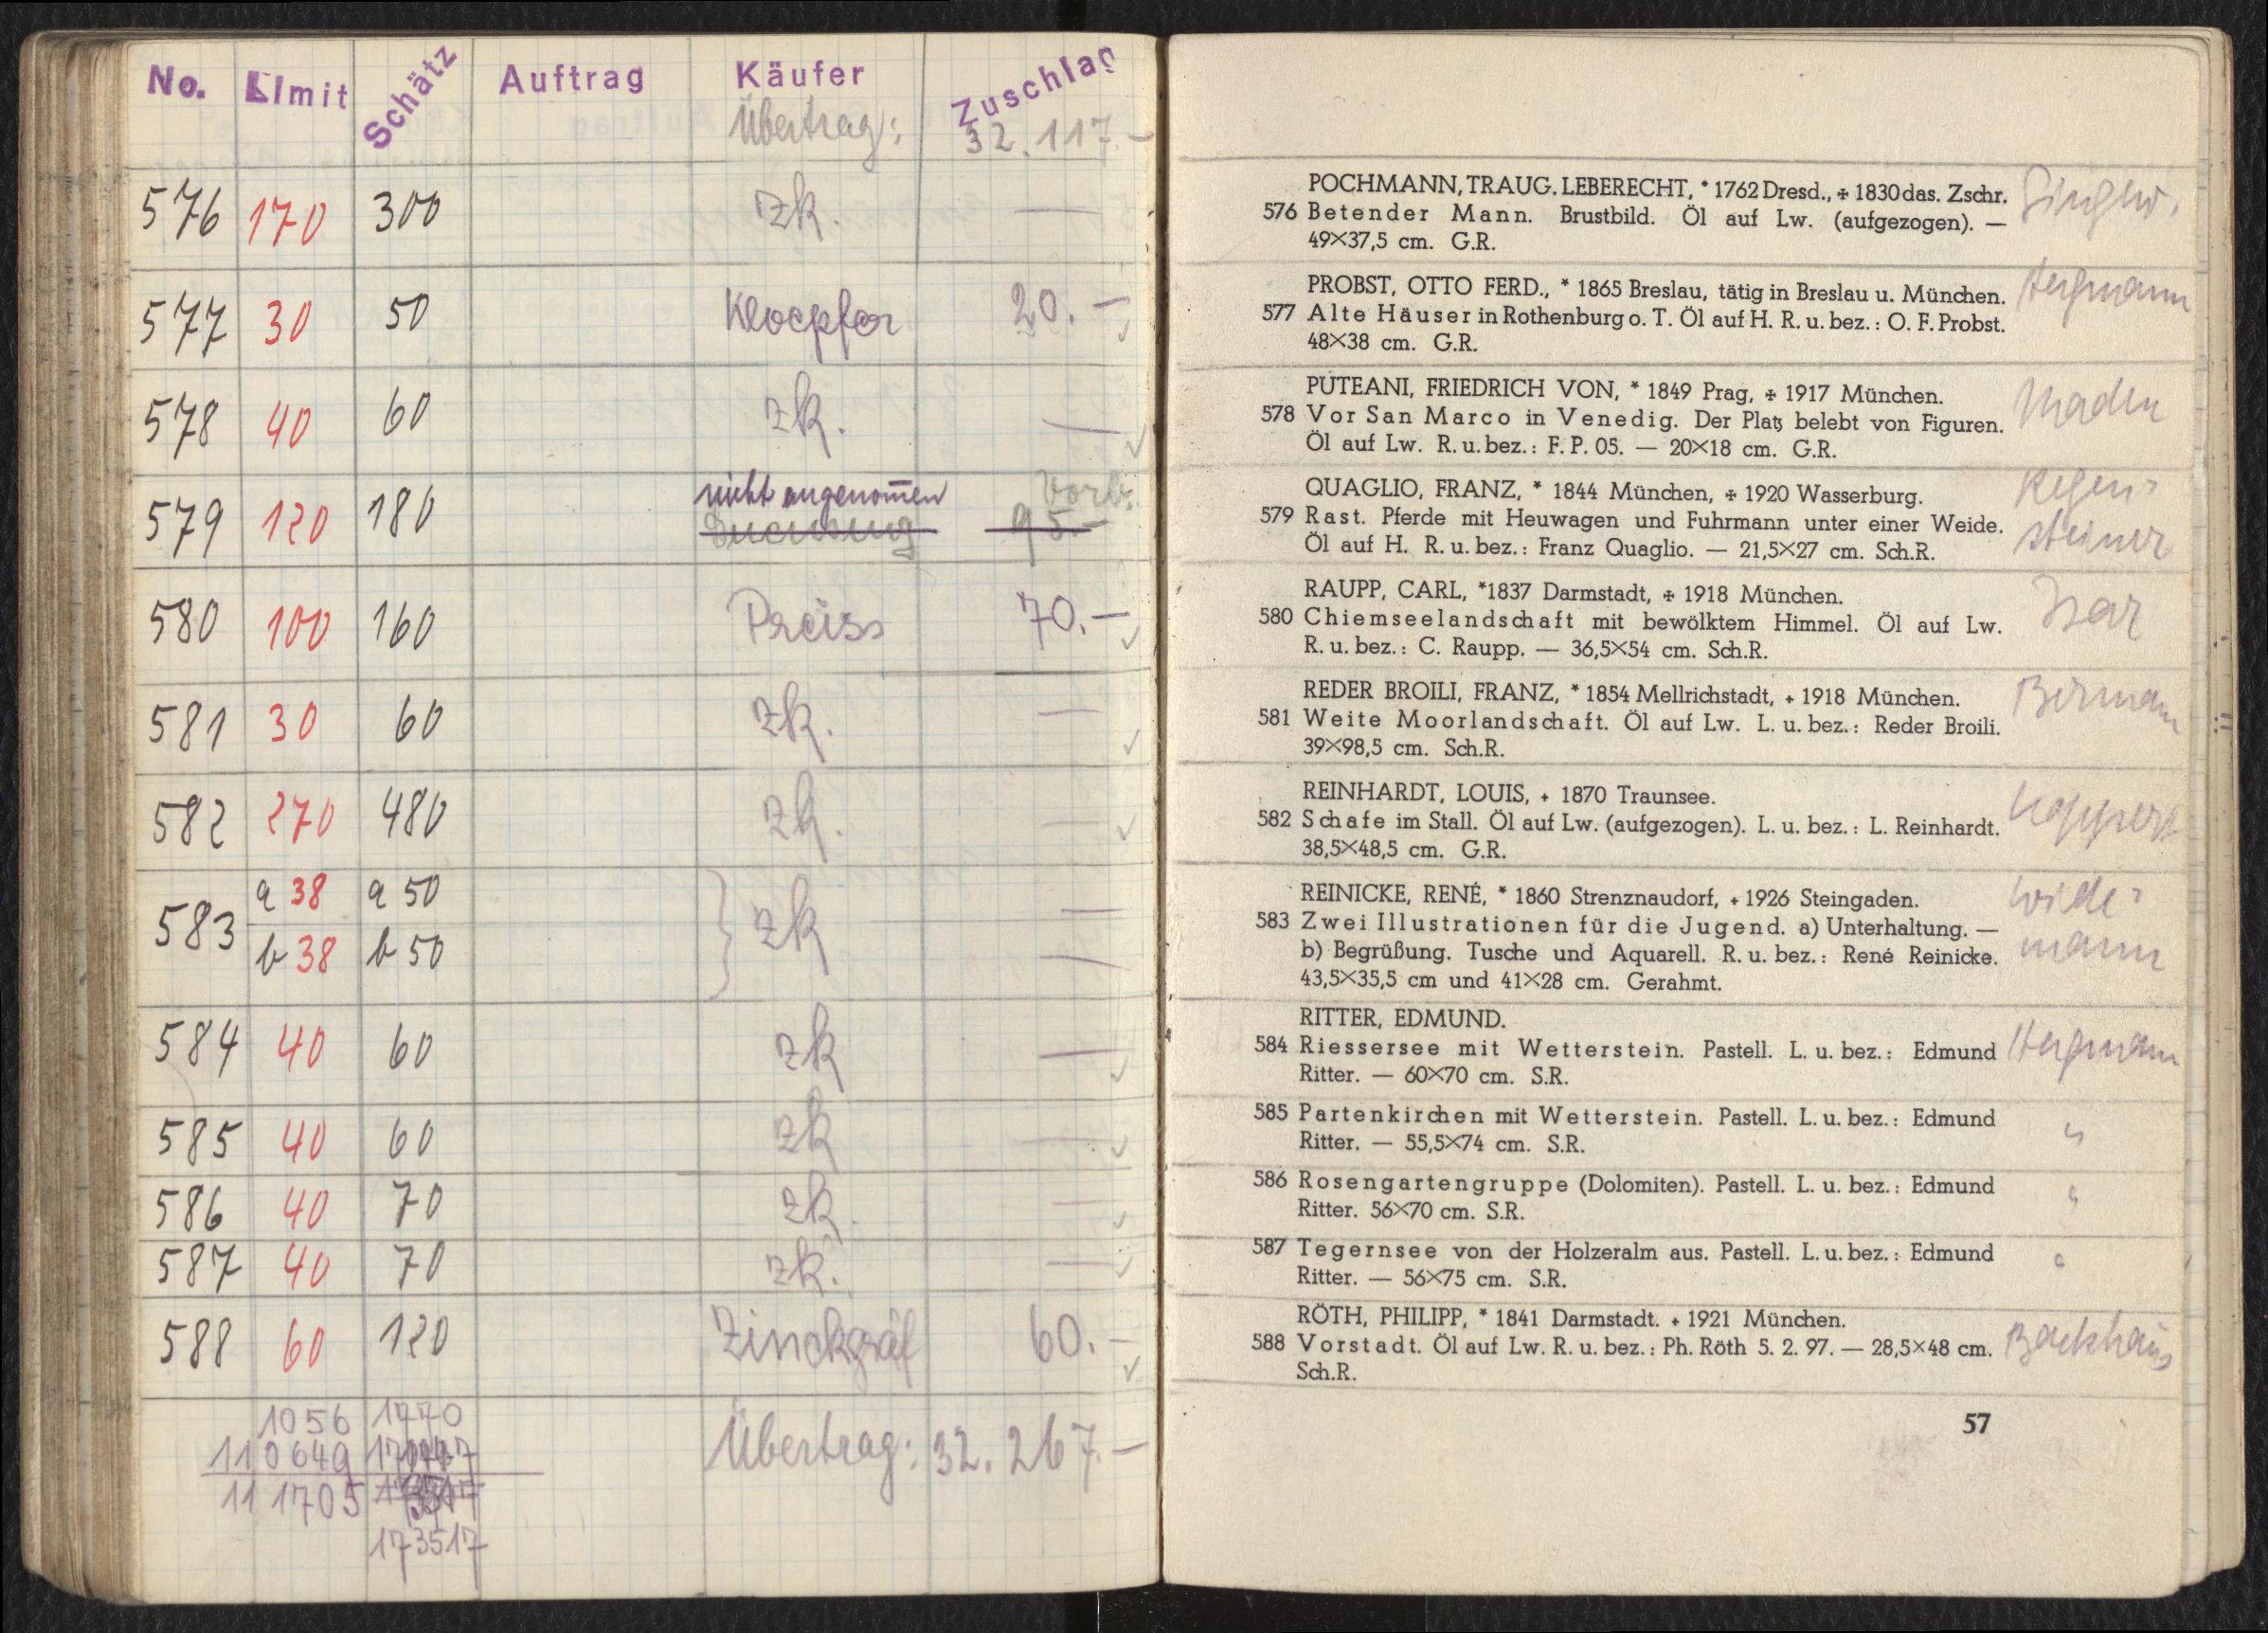 No. Limit Schätz Auftrag Käufer Zuschlag
Übertrag: 32.117.—
576 170 300 zk. —
577 30 50 Kloepfer 20.—
578 40 60 zk. —
nicht angenom̅en Vorb.
579 120 180 95.—
580 100 160 Preiss 70.—
581 30 60 zk. —
582 270 480 zk. —
583 a 38 a 50 zk —
b 38 b 50 —
584 40 60 zk —
585 40 60 zk —
586 40 70 zk. —
587 40 70 zk. —
588 60 120 Zinckgräf 60.—
1056 1770
110649
111705
173517
Übertrag: 32.267.—
POCHMANN, TRAUG. LEBERECHT, * 1762 Dresd., ✠ 1830 das. Zschr.
576 Betender Mann. Brustbild. Öl auf Lw. (aufgezogen). —
49×37,5 cm. G.R.
PROBST, OTTO FERD., * 1865 Breslau, tätig in Breslau u. München.
577 Alte Häuser in Rothenburg o. T. Öl auf H. R. u. bez.: O. F. Probst.
48×38 cm. G.R.
PUTEANI, FRIEDRICH VON, * 1849 Prag, ✠ 1917 München.
578 Vor San Marco in Venedig. Der Platz belebt von Figuren.
Öl auf Lw. R. u. bez.: F. P. 05. — 20×18 cm. G.R.
QUAGLIO, FRANZ, * 1844 München, ✠ 1920 Wasserburg.
579 Rast. Pferde mit Heuwagen und Fuhrmann unter einer Weide.
Öl auf H. R. u. bez.: Franz Quaglio. — 21,5×27 cm. Sch.R.
Regen-
steiner
RAUPP, CARL, *1837 Darmstadt, ✠ 1918 München.
580 Chiemseelandschaft mit bewölktem Himmel. Öl auf Lw.
R. u. bez.: C. Raupp. — 36,5×54 cm. Sch.R.
Isar
REDER BROILI, FRANZ, * 1854 Mellrichstadt, + 1918 München.
581 Weite Moorlandschaft. Öl auf Lw. L. u. bez.: Reder Broili.
39×98,5 cm. Sch.R.
Bermann
REINHARDT, LOUIS, + 1870 Traunsee.
582 Schafe im Stall. Öl auf Lw. (aufgezogen). L. u. bez.: L. Reinhardt.
38,5×48,5 cm. G.R.
REINICKE, RENÉ, * 1860 Strenznaudorf, + 1926 Steingaden.
583 Zwei Illustrationen für die Jugend. a) Unterhaltung. —
b) Begrüßung. Tusche und Aquarell. R. u. bez.: René Reinicke.
43,5×35,5 cm und 41×28 cm. Gerahmt.
Wilde-
mann
RITTER, EDMUND.
584 Riessersee mit Wetterstein. Pastell. L. u. bez.: Edmund
Ritter. — 60×70 cm. S.R.
585 Partenkirchen mit Wetterstein. Pastell. L. u. bez.: Edmund
Ritter. — 55,5×74 cm. S.R.
586 Rosengartengruppe (Dolomiten). Pastell. L. u. bez.: Edmund
Ritter. 56×70 cm. S.R.
587 Tegernsee von der Holzeralm aus. Pastell. L. u. bez.: Edmund
Ritter. — 56×75 cm. S.R.
RÖTH, PHILIPP, * 1841 Darmstadt. + 1921 München.
588 Vorstadt. Öl auf Lw. R. u. bez.: Ph. Röth 5. 2. 97. — 28,5×48 cm.
Sch.R.
Backhaus
57